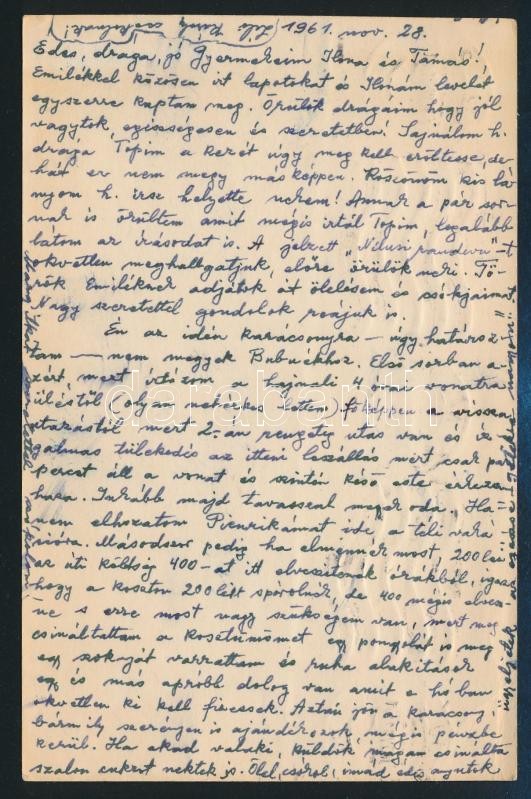 1961. nov. 28.
Édes, drága, jó Gyermekeim Ilona és Tamás!
Emilékkel közösen irt lapotokat és Ilonám levelét
egyszerre kaptam meg. Örülök drágáim hogy jól
vagytok, egészségesen és szeretetben! Sajnálom h.
drága Topim a kezét úgy meg kell erőltesse, de
hát ez nem megy másképpen. Köszönöm kis lá-
nyom h. irsz helyette nekem! Annak a pár sor-
nak is örültem amit mégis irtál Topim, legalább
látom az irásodat is. A jelzett "Nílusi randevú"-t
okvetlen meghallgatjuk, előre örülök neki. Tö-
rök Emiléknek adjátok át ölelésem és csókjaimat
Nagy szeretettel gondolok reájuk is.
Én az idén karácsonyra — úgy határoz-
tam — nem megyek Bubuékhoz. Első sorban a-
zért, mert irtózom a hajnali 4 órai vonatra
üléstől olyan nehézkes lettem, főképpen a vissza
utazástól mert 2.-án rengeteg utas van és iz-
galmas tülekedés az itteni leszállás mert csak pár
percet áll a vonat és szintén késő este érkezem
haza. Inkább majd tavasszal megyek oda. Ha-
nem elhozatom ide, a téli vaká
cióra. Másodszor pedig ha elmennék most, 200 lei
az úti költség 400-at itt elveszítenék órákból, igaz
hogy a koszton 200 leit spórolnék, de 400 mégis elvesz-
ne s erre most nagy szükségem van, mert meg
csináltattam a kosztümömet egy pongyolát is meg
egy szoknyát varrattam és ruha alakitások
egy és más apróbb dolog van amit e hóban
okvetlen ki kell fizessek. Aztán jön a karácsony,
bármily szerényen is ajándékozok, mégis pénzbe
kerül. Ha akad valaki, küldök magam csinálta
szalon cukrot nektek is. Ölel, csókol, imád édes anyátok